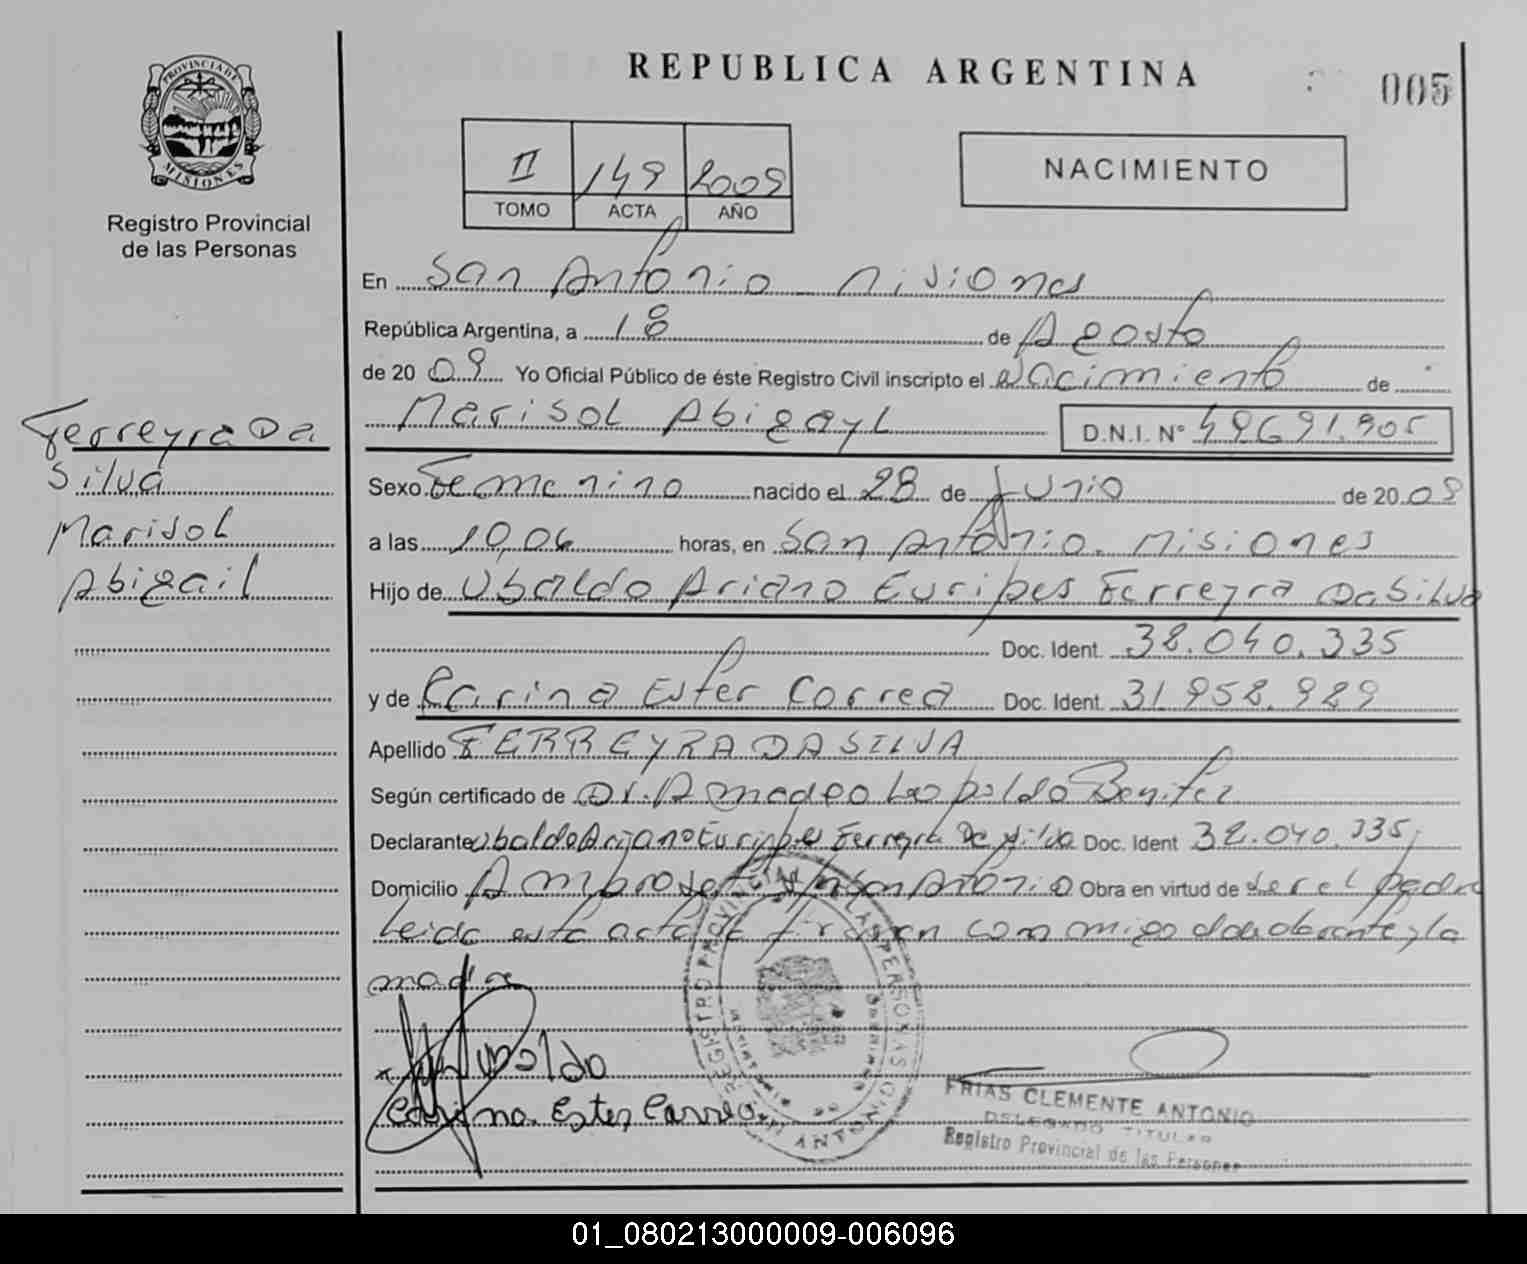 REPUBLICA ARGENTINA
005
PROVINCIA DE MISIONES
Registro Provincial
de las Personas
II 149 2009
TOMO ACTA AÑO
NACIMIENTO
En San Antonio Misiones
República Argentina, a 18 de Agosto
de 2009 Yo Oficial Público de éste Registro Civil inscripto el Nacimiento de
Marisol Abigayl D.N.I. Nº 49691.905
Ferreyra Da
Silva
Marisol
Abigail
Sexo Femenino nacido el 28 de Junio de 2009
a las 10,06 horas, en San Antonio. Misiones
Hijo de Ubaldo Ariano Euripes Ferreyra Da Silva
Doc. Ident. 38.040.335
y de Carina Ester Correa Doc. Ident. 31.958.989
Apellido FERREYRA DA SILVA
Según certificado de Dr. Amadeo Leopoldo Benitez
Declarante Ubaldo Ariano Euripes Ferreyra Da Silva Doc. Ident 38.040.335
Domicilio San Antonio Obra en virtud de ser el padre
Leida esta acta la firman conmigo el declarante y la
madre
Ubaldo
Carina Ester Correa
REGISTRO PROVINCIAL DE LAS PERSONAS
SAN ANTONIO
MISIONES
FRIAS CLEMENTE ANTONIO
DELEGADO TITULAR
Registro Provincial de las Personas
01_080213000009-006096